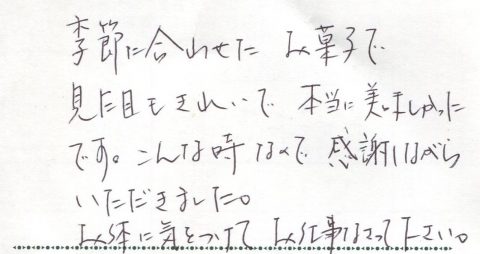 季節に合わせた お菓子で
見た目もきれいで 本当に美味しかった
です。こんな時なので 感謝しながら
いただきました。
お体に気をつけて お仕事なさって下さい。